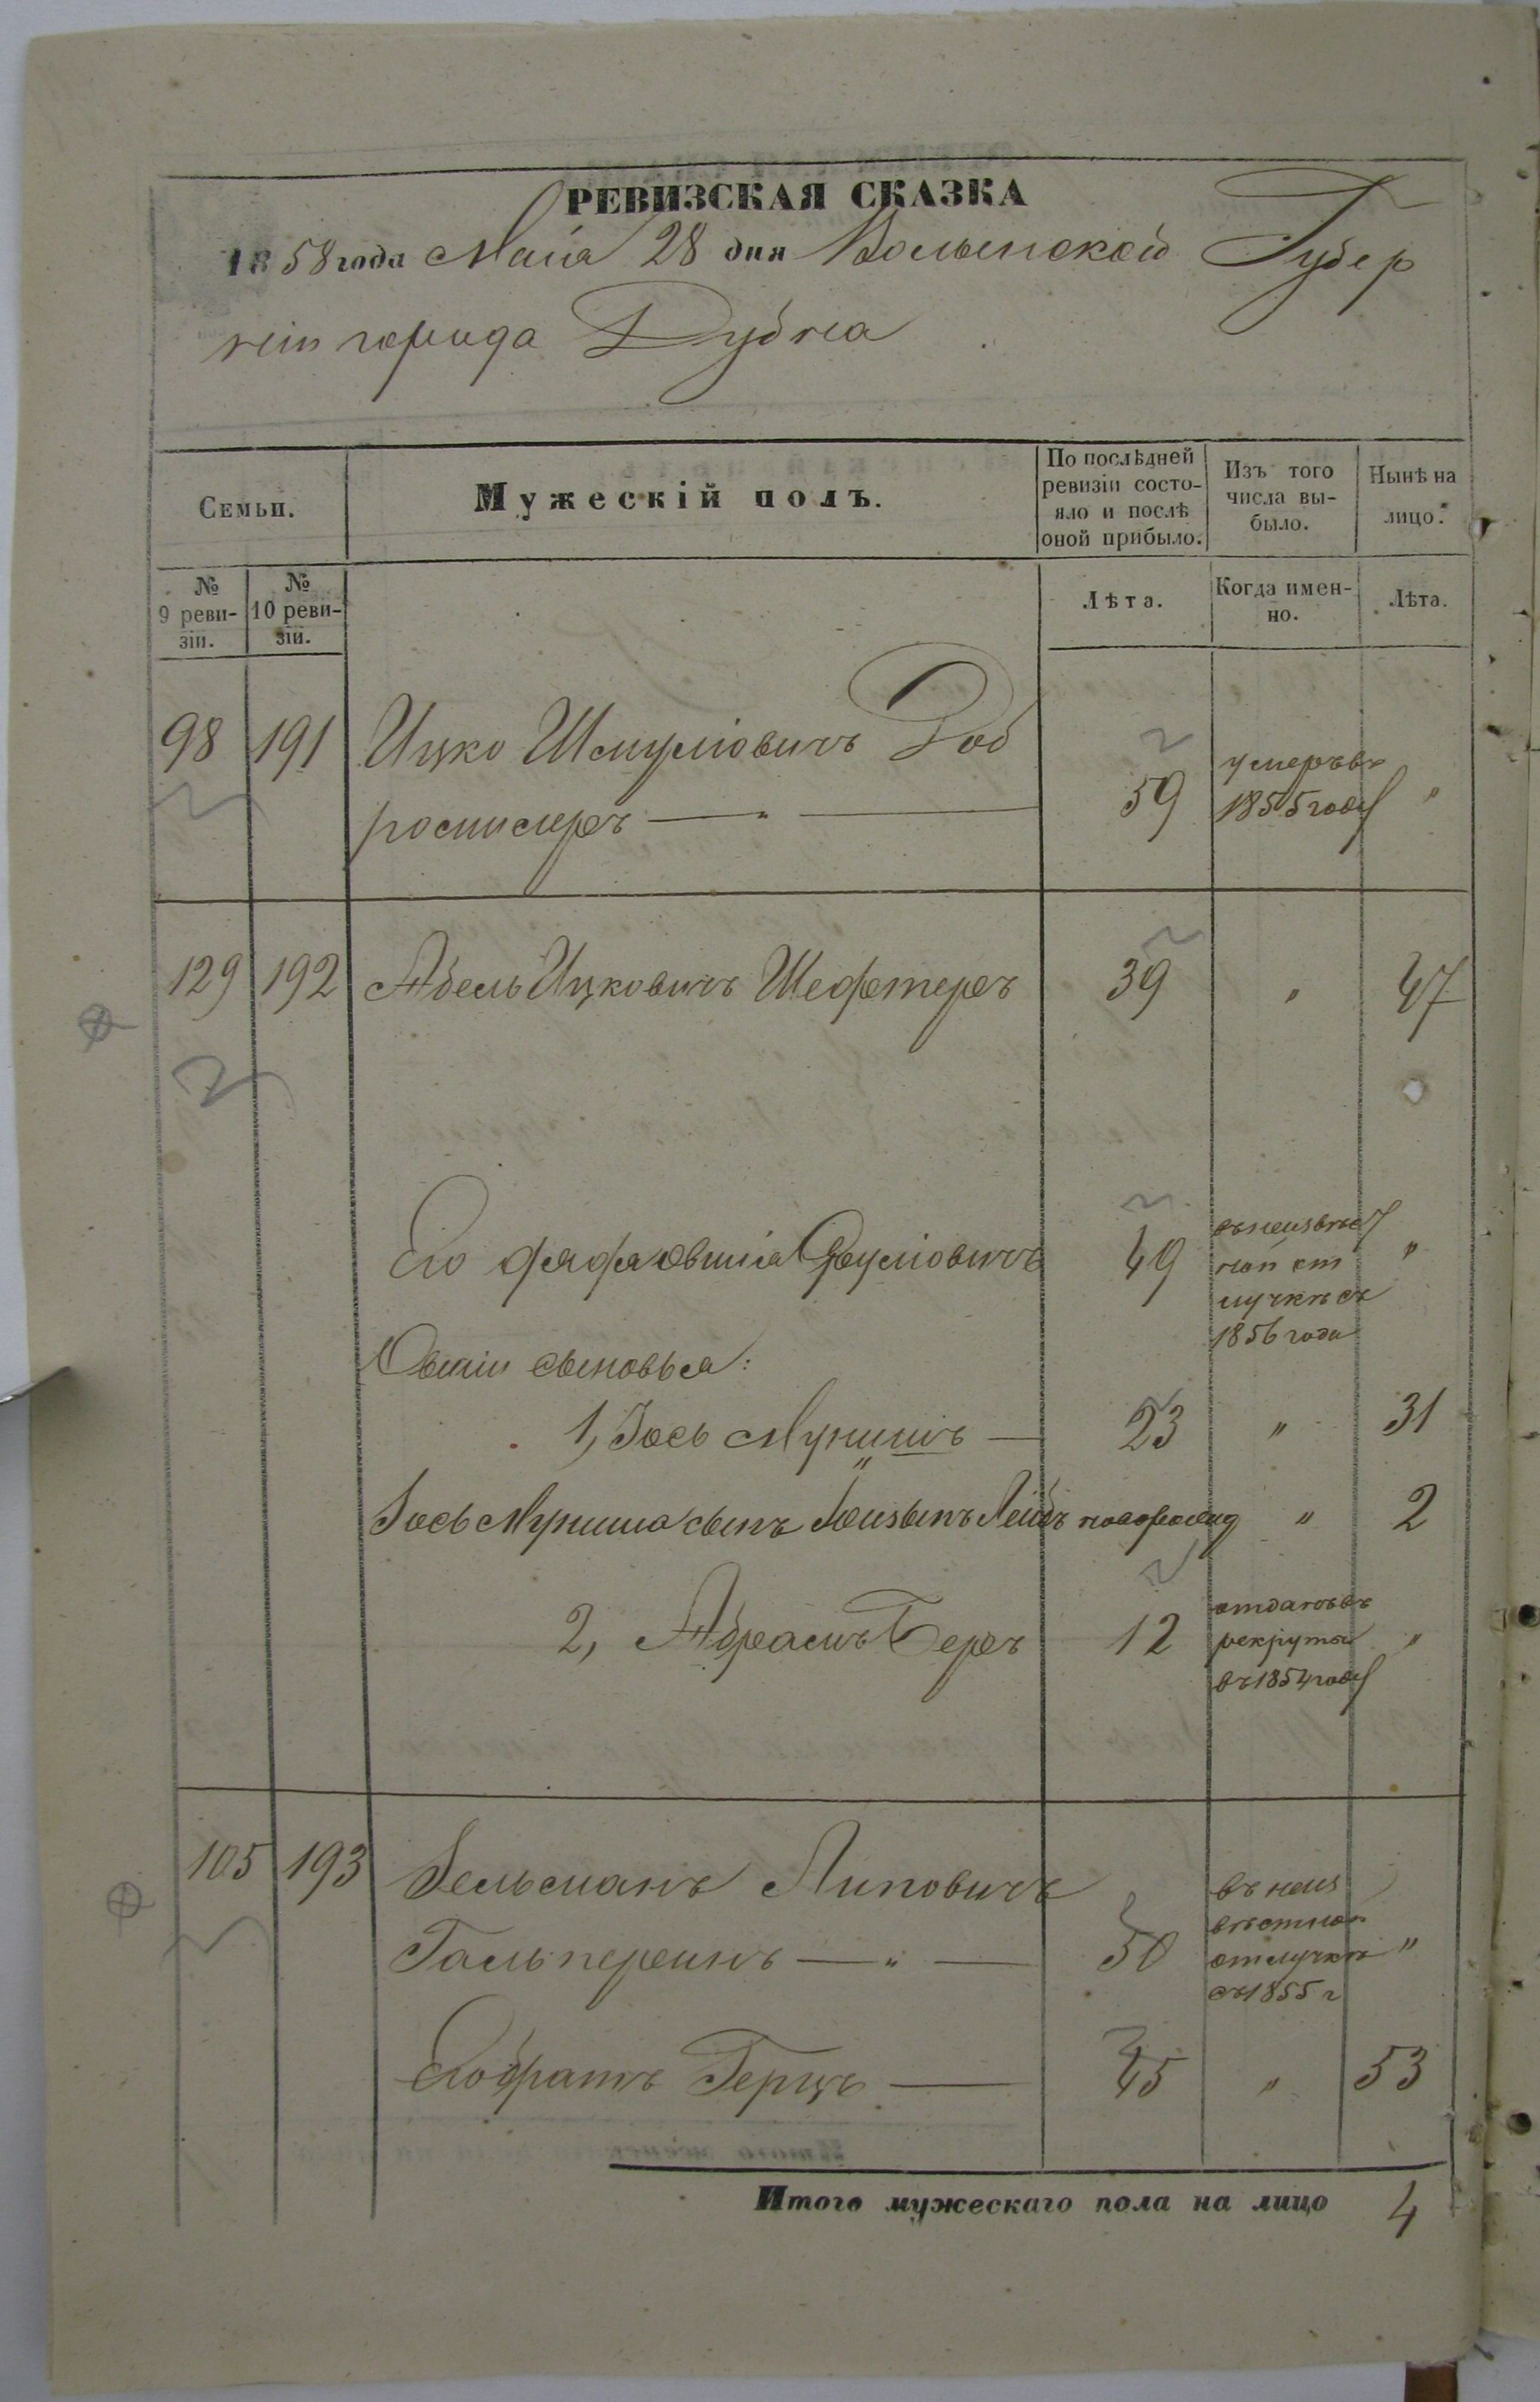 РЕВИЗСКАЯ СКАЗКА
1858 года Маія 28 дня Волынской Губер
ніи города Дубна
Семьи.
Мужескій полъ.
По послѣдней ревизіи состо-
яло и послѣ
оной прибыло.
Изъ того
числа вы-
было.
Нынѣ на
лицо.
№
9 реви-
зіи.
№
10 реви-
зіи.
Лѣта.
Когда имен-
но.
Лѣта.
98 191 Ицко Шмуліовичъ Доб
рошмееръ — „ — 59 умеръ въ
1855 году „
129 192 Абель Ицковичъ Шефтеръ 39 „ 47
Его дядя Овшія Сруліовичъ 49 въ неизвѣст
ной от
лучкѣ съ
1856 года „
Овшіи сыновья:
1, Зось Мунишъ — 23 „ 31
Зось Муниша сынъ Лейбъ новорожд „ 2
2, Абрамъ Беръ 12 отданъ въ
рекруты
въ 1854 году „
105 193 Зельманъ Липовичъ
Гальперинъ — „ — 50 въ неиз
вѣстной
отлучкѣ
съ 1855 г „
Его братъ Герцъ — 45 „ 53
Итого мужескаго пола на лицо 4